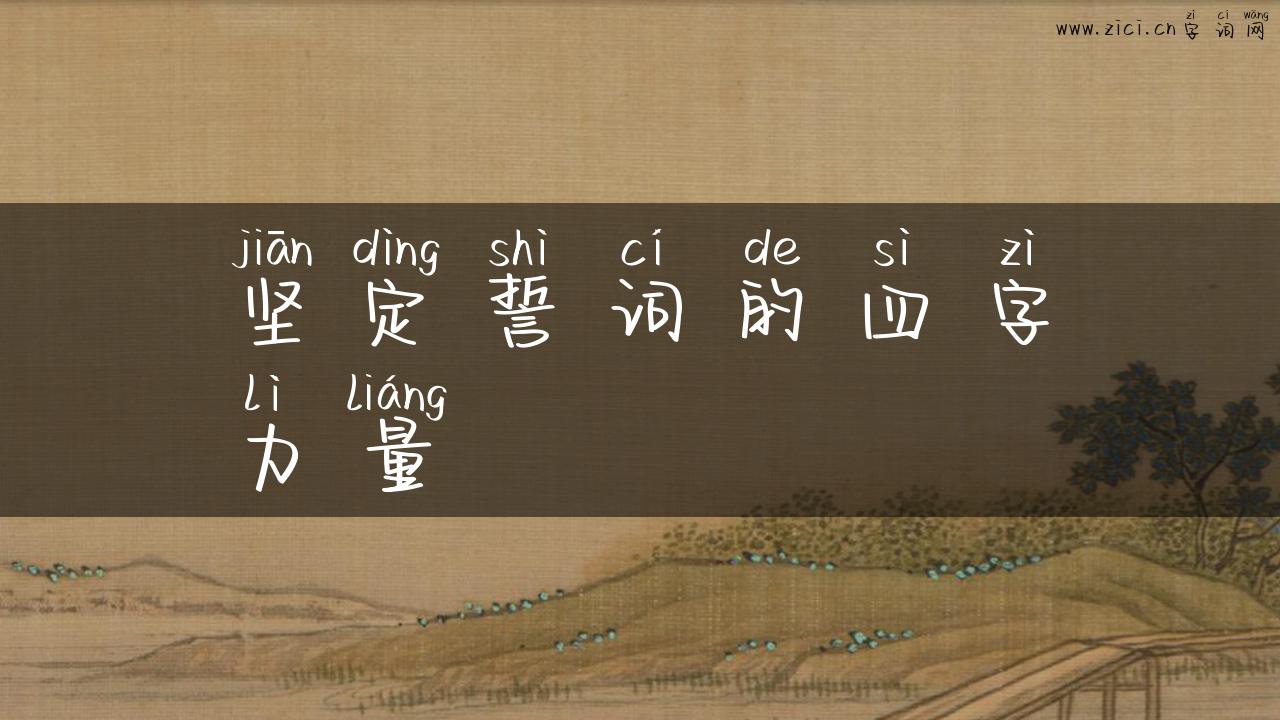 zì cí wǎng
www.zici.cn字词网
jiān dìng shì cí de sì zì
坚定誓词的四字
lì liáng
力量